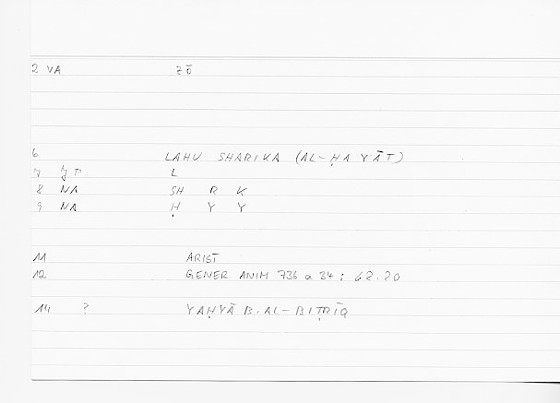 2 VA ZŌ
6 LAHU SHARIKA (AL-ḤAYĀT)
L
8 NA SH R K
9 NA Ḥ Y Y
11 ARIST
12 GENER ANIM 736 a 34 : 62.20
14 ? YAḤYĀ B. AL-BIṬRĪQ